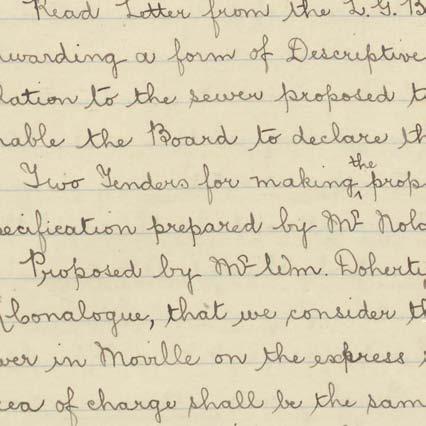 Read Letter from the L. G. B
warding a form of Descriptive
lation to the sewer proposed t
nable the Board to declare th
Two Tenders for making the prop
ecification prepared by Mr. Nola
Proposed by Mr. Wm. Doherty
(Gonalogue, that we consider th
wer in Moville on the express
rea of charge shall be the sam